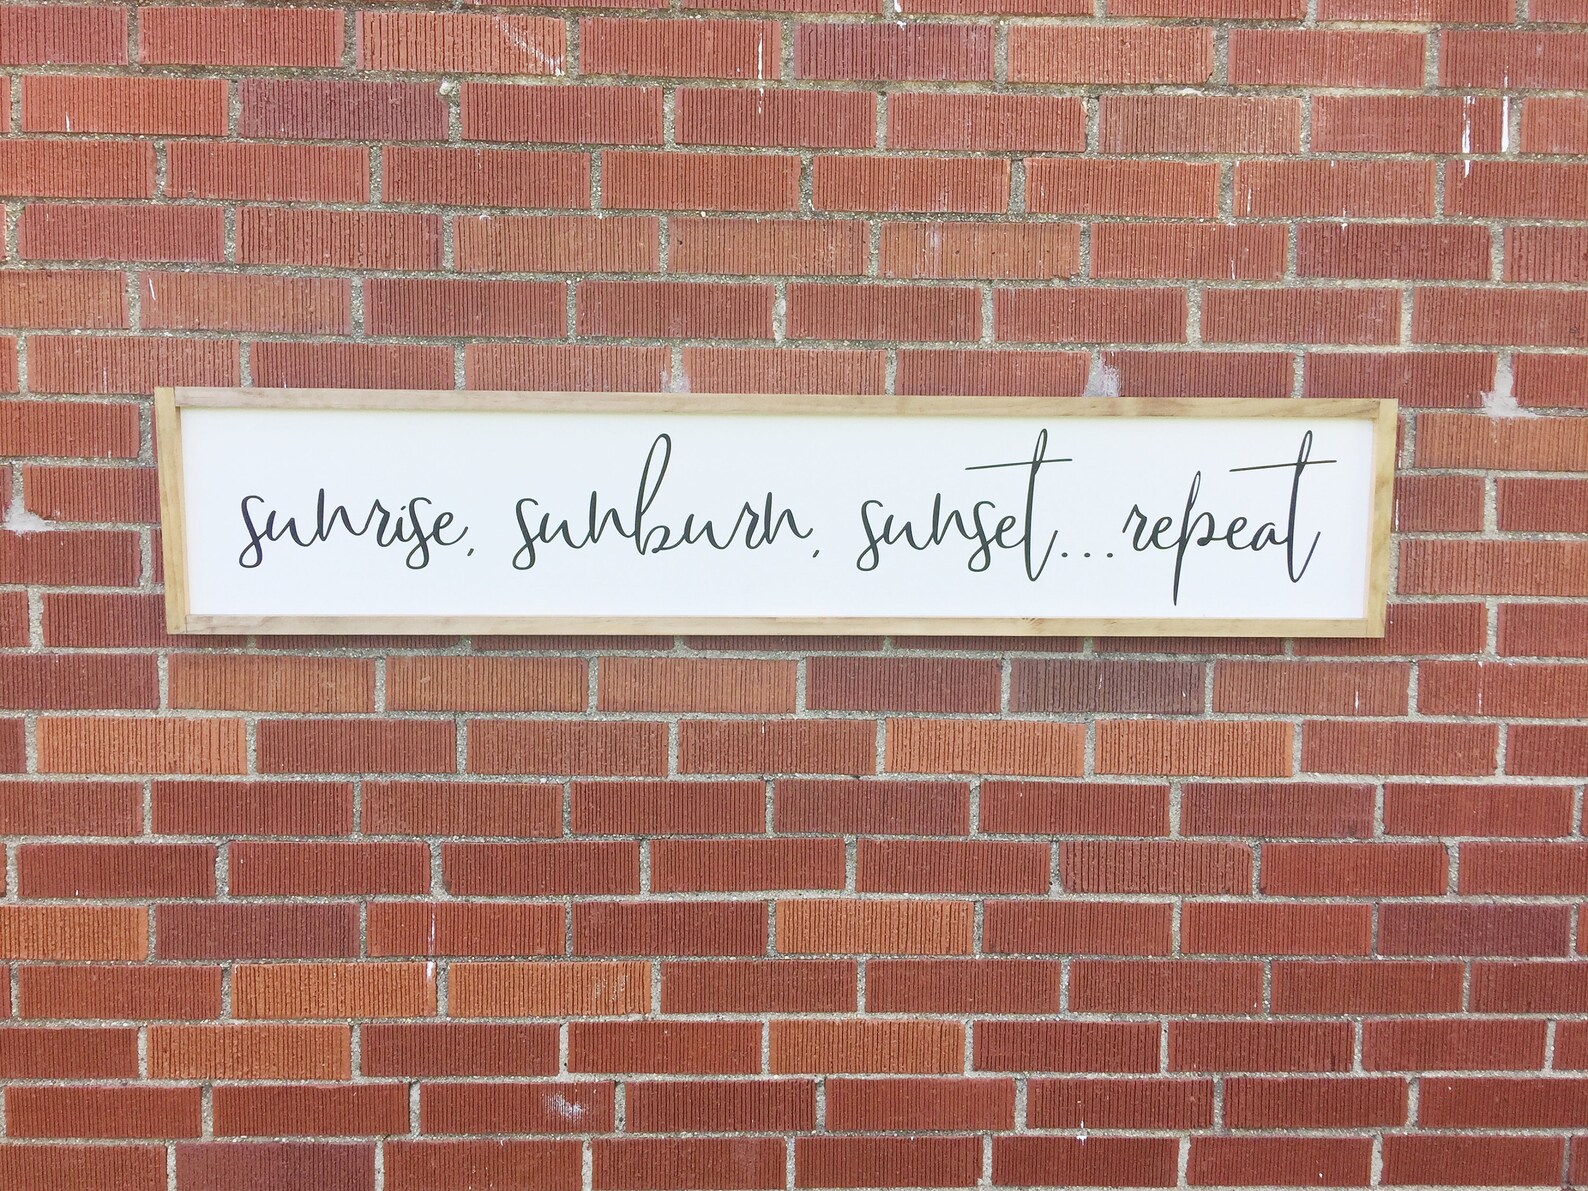 sunrise, sunburn, sunset...repeat